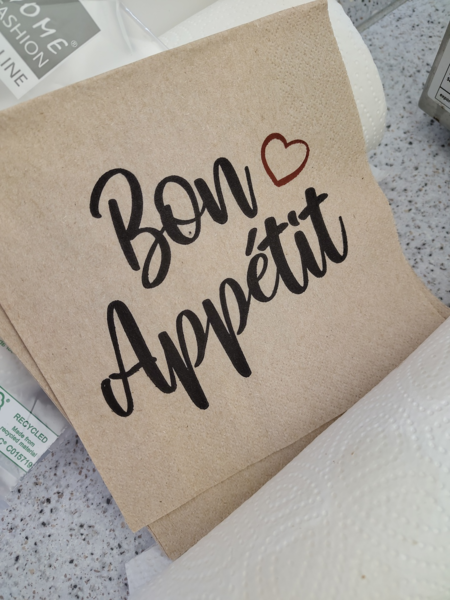 HOME
FASHION®
LINE
Bon
Appétit
RECYCLED
Made from
recycled material
C015719